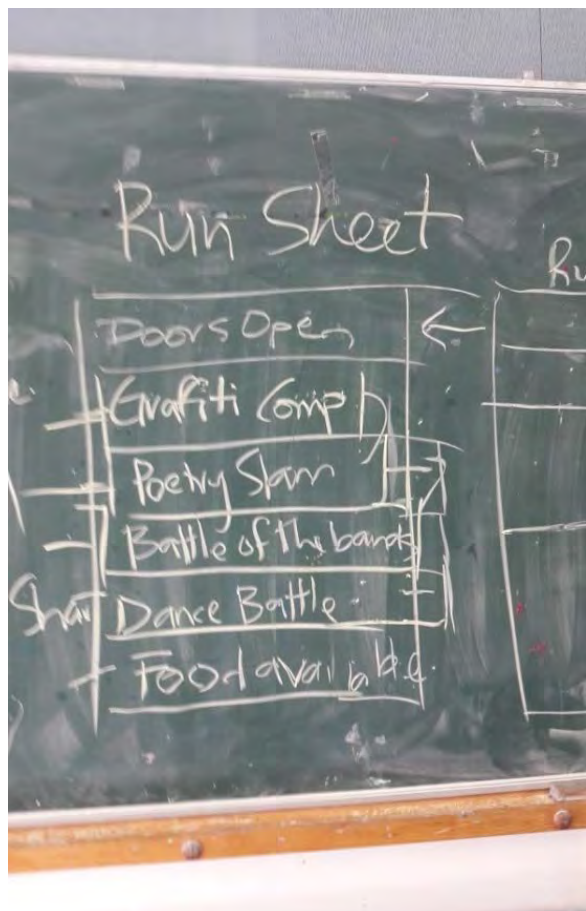 Run Sheet
Doors Open
Grafiti Comp
Poetry Slam
Battle of the bands
Dance Battle
Food available.